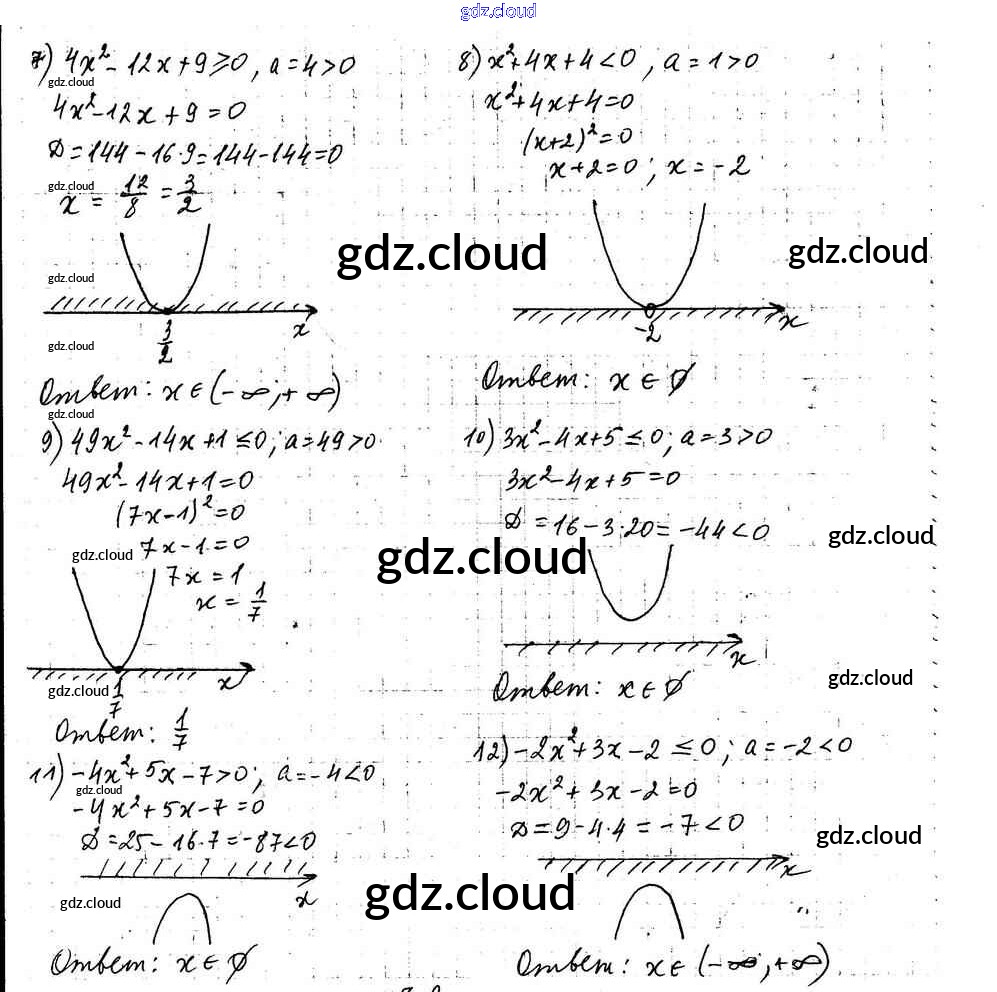 gdz.cloud
7) 4x² - 12x + 9 ≥ 0, a = 4 > 0
gdz.cloud
4x² - 12x + 9 = 0
D = 144 - 16·9 = 144 - 144 = 0
gdz.cloud
x = 12/8 = 3/2
gdz.cloud
gdz.cloud
x
3/2
gdz.cloud
Ответ: x ∈ (-∞; +∞)
gdz.cloud
8) x² + 4x + 4 < 0, a = 1 > 0
x² + 4x + 4 = 0
(x+2)² = 0
x + 2 = 0; x = -2
gdz.cloud
-2
x
Ответ: x ∈ ∅
9) 49x² - 14x + 1 ≤ 0; a = 49 > 0
49x² - 14x + 1 = 0
(7x - 1)² = 0
7x - 1 = 0
gdz.cloud
gdz.cloud
7x = 1
x = 1/7
x
gdz.cloud
1/7
Ответ: 1/7
10) 3x² - 4x + 5 ≤ 0; a = 3 > 0
3x² - 4x + 5 = 0
D = 16 - 3·20 = -44 < 0
gdz.cloud
x
gdz.cloud
Ответ: x ∈ ∅
11) -4x² + 5x - 7 > 0; a = -4 < 0
gdz.cloud
-4x² + 5x - 7 = 0
D = 25 - 16·7 = -87 < 0
x
gdz.cloud
gdz.cloud
Ответ: x ∈ ∅
12) -2x² + 3x - 2 ≤ 0; a = -2 < 0
-2x² + 3x - 2 = 0
D = 9 - 4·4 = -7 < 0
gdz.cloud
x
Ответ: x ∈ (-∞; +∞)